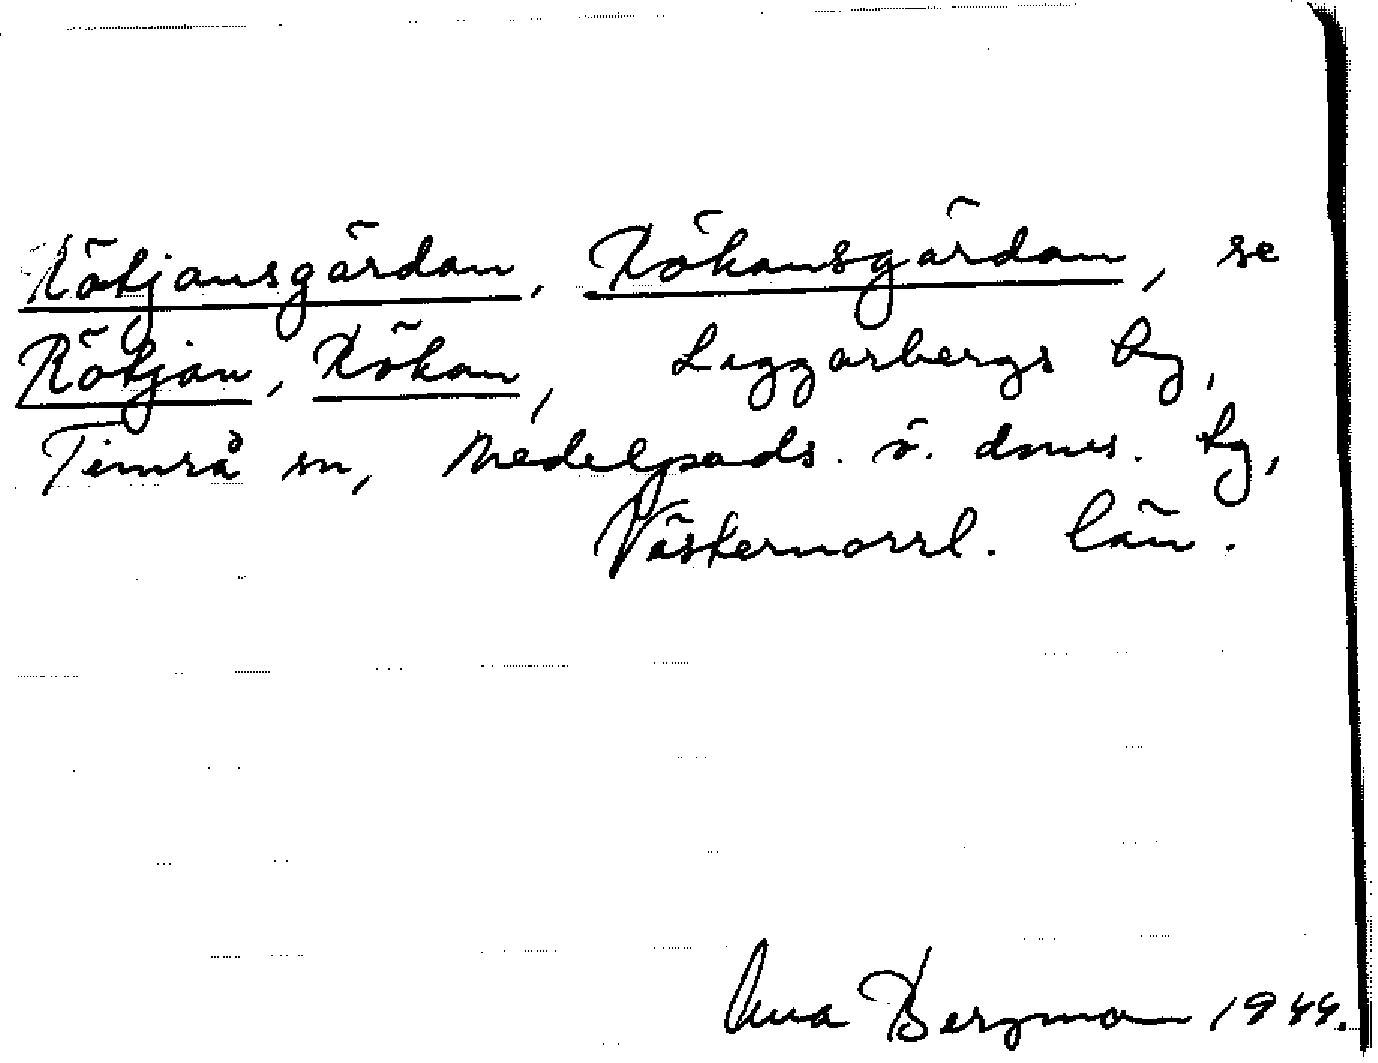 Rötjansgärdan, Rökansgärdan, se
Rötjan, Rökan, Laggarbergs by,
Timrå sn, Medelpads. ö. doms. tg,
Västernorrl. län.
Anna Bergman 1944.